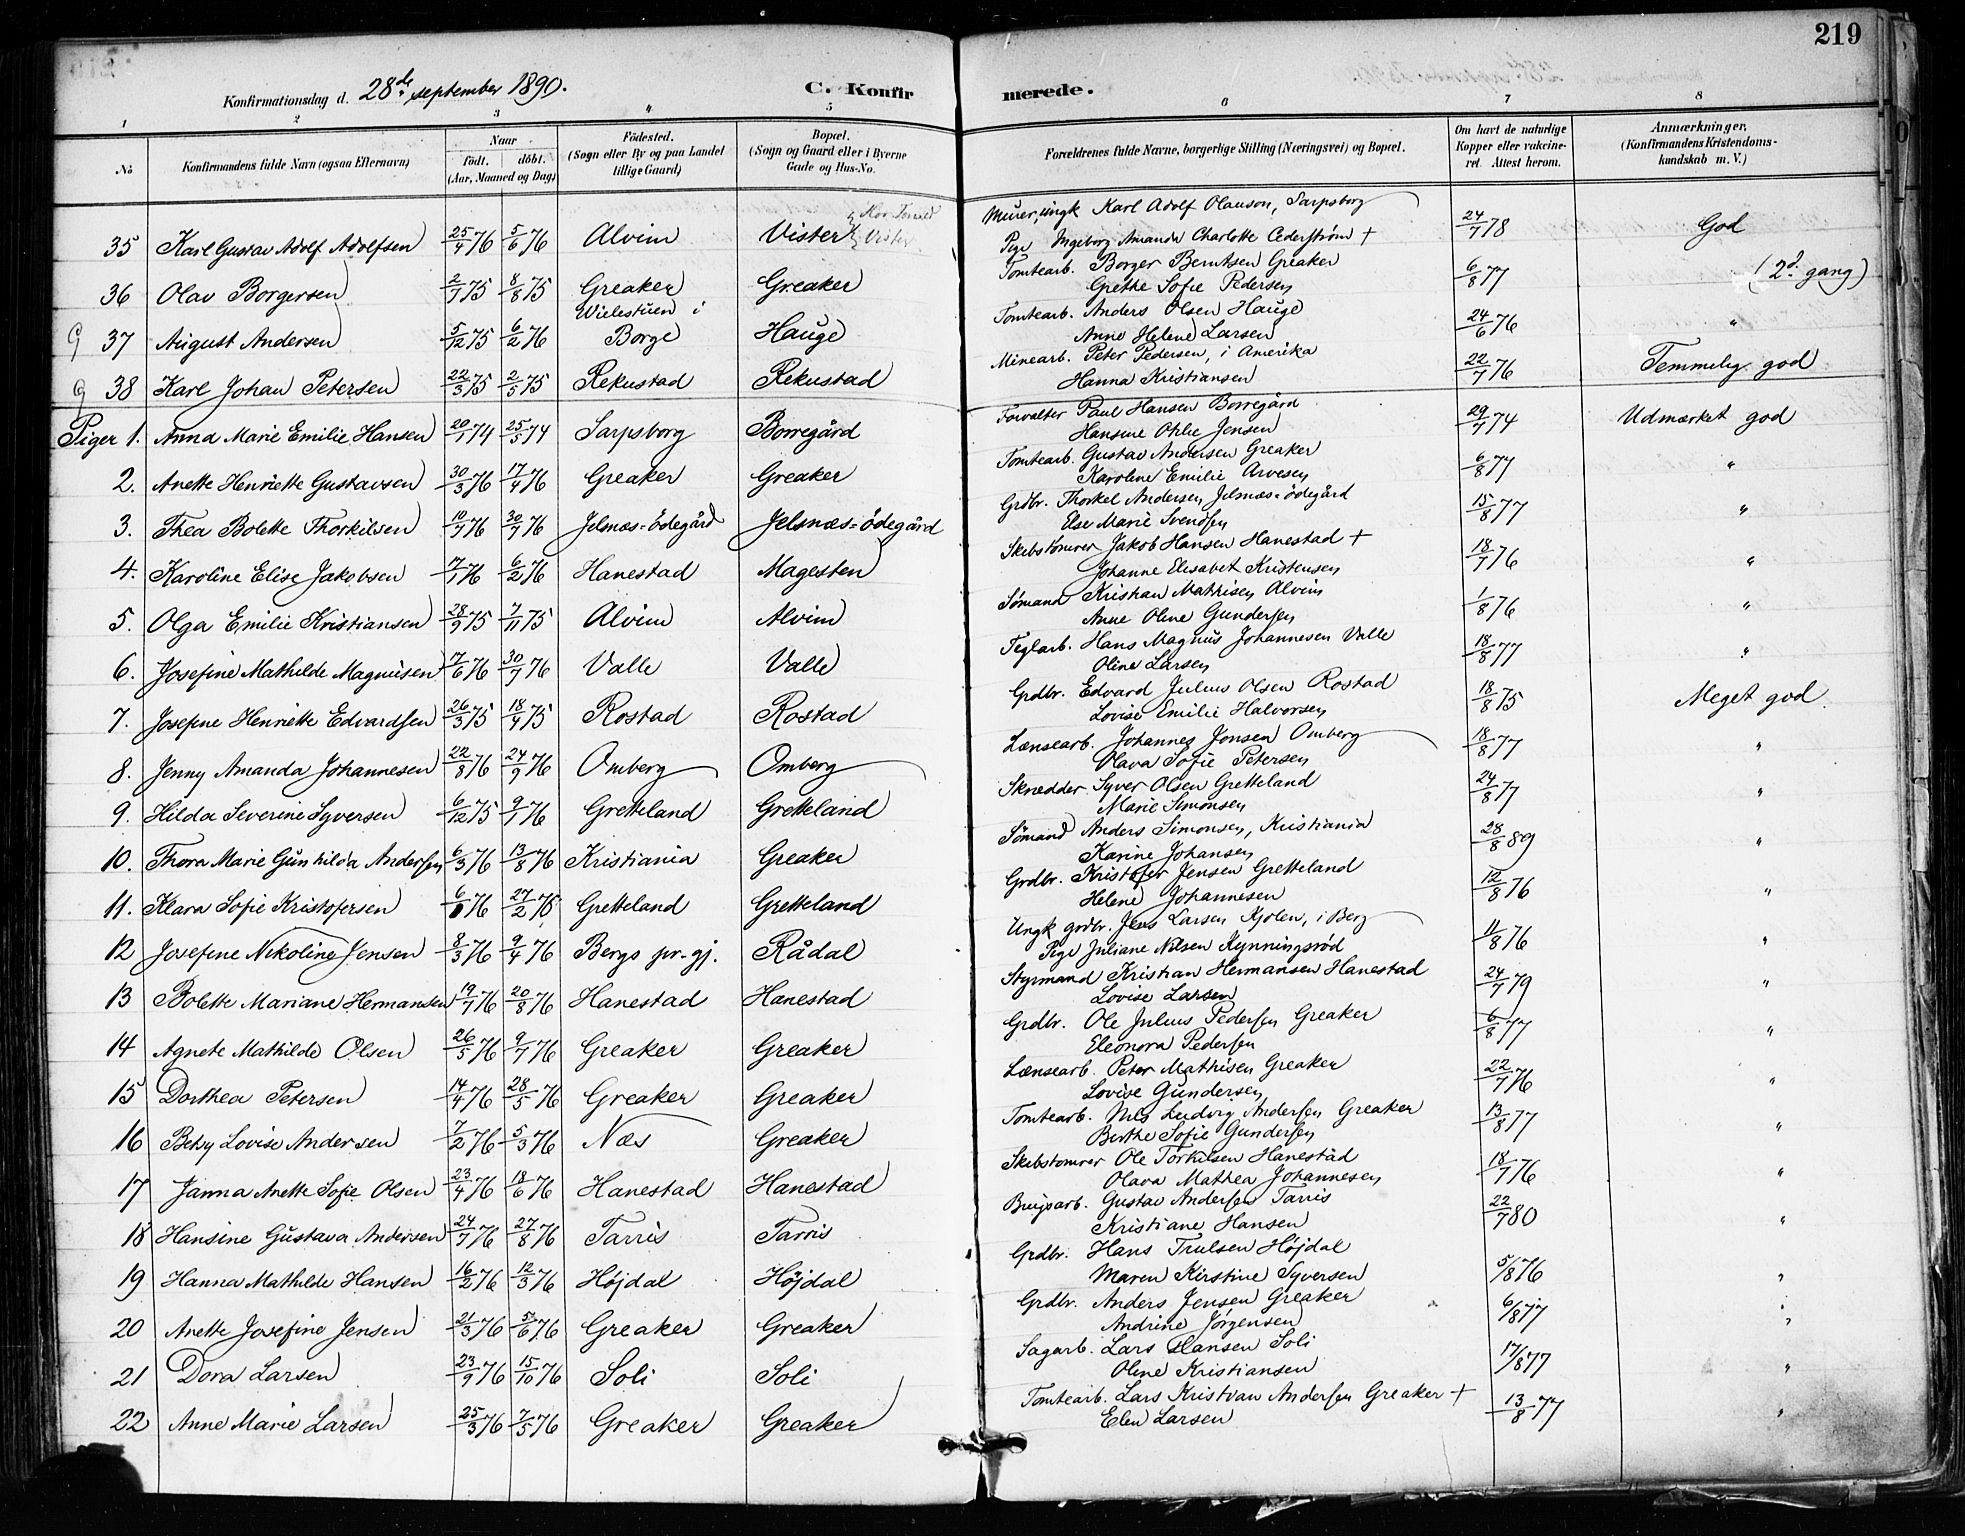 219
Konfirmationsdag d. 28de september 1890. C. Konfirmerede.
1 2 3 4 5 6 7 8
No Konfirmandens fulde Navn (ogsaa Efternavn) Naar födt. döbt. (Aar, Maaned og Dag) Födested. (Sogn eller By og paa Landet tillige Gaard) Bopæl. (Sogn og Gaard eller i Byerne Gade og Hus-No. Forældrenes fulde Navne, borgerlige Stilling (Næringsvei) og Bopæl. Om havt de naturlige Kopper eller vakcineret. Attest herom. Anmærkninger. (Konfirmandens Kristendomskundskab m. V.)
35 Karl Gustav Adolf Adolfsen 25/4 76 5/6 76 Alvim Vister Murer, ungk Karl Adolf Olauson, Sarpsborg 24/7 78 God
Pige Ingeborg Amanda Charlotte Cederstrøm +
36 Olav Borgersen 2/7 75 8/8 75 Greaker Greaker Tomtearb. Borger Berntsen Greaker 6/8 77 (2d. gang)
Grethe Sofie Pedersen
37 August Andersen 5/12 75 6/2 76 Wielestuen i Borge Hauge Tomtearb. Anders Olsen Hauge 24/6 76 "
Anne Helene Larsen
38 Karl Johan Petersen 22/3 75 2/5 75 Rekustad Rekustad Minearb. Peter Pedersen, i Amerika 22/7 76 Temmelig god
Hanna Kristiansen
Piger 1. Anna Marie Emilie Hansen 20/1 74 25/5 74 Sarpsborg Borregård Forvalter Paul Hansen Borregård 29/7 74 Udmærket god
Hansine Jensen
2. Anette Henriette Gustavsen 30/3 76 17/4 76 Greaker Greaker Tomtearb. Gustav Andersen Greaker 6/8 77 "
Karoline Emilie Arvesen
3. Thea Bolette Thorkilsen 10/7 76 30/7 76 Jelsnæs-Ödegård Jelsnæs-ödegård Grdbr. Thorkel Andersen Jelsnæs-ödegård 15/8 77 "
Else Marie Svendsen
4. Karoline Elise Jakobsen 7/1 76 6/2 76 Hanestad Magesten Skibstömrer Jakob Hansen Hanestad + 18/7 76 "
Johanne Elisabet Kristensen
5. Olga Emilie Kristiansen 28/9 75 7/11 75 Alvim Alvim Sömand Kristian Mathisen Alvim 1/8 76 "
Anne Oline Gundersen
6. Josefine Mathilde Magnusen 17/6 76 30/7 76 Valle Valle Teglarb. Hans Magnus Johannesen Valle 18/8 77 "
Oline Larsen
7. Josefine Henriette Edvardsen 26/3 75 18/4 75 Rostad Rostad Grdbr. Edvard Julius Olsen Rostad 18/8 75 Meget god.
Lovise Emilie Halvorsen
8. Jenny Amanda Johannesen 22/8 76 24/9 76 Omberg Omberg Lænsearb. Johannes Jonsen Omberg 18/8 77 "
Olava Sofie Petersen
9. Hilda Severine Syversen 6/12 75 9/1 76 Gretteland Gretteland Skrædder Syver Olsen Gretteland 24/8 77 "
Marie Simonsen
10. Thora Marie Gunhilda Andersen 6/3 76 13/8 76 Kristiania Greaker Sömand Anders Simonsen, Kristiania 28/8 89 "
Karine Johansen
11. Klara Sofie Kristofersen 6/1 76 27/2 76 Gretteland Gretteland Grdbr. Kristofer Jensen Gretteland 12/8 76 "
Helene Johannesen
12 Josefine Nikoline Jensen 8/3 76 9/4 76 Bergs pr.gj. Rådal Ungk grdbr. Jens Larsen Kjølen, i Berg 11/8 76 "
Pige Juliane Nilsen Kynningsrød
13 Bolette Mariane Hermansen 19/7 76 20/8 76 Hanestad Hanestad Styrmand Kristian Hermansen Hanestad 24/7 79 "
Lovise Larsen
14 Agnete Mathilde Olsen 26/5 76 9/7 76 Greaker Greaker Grdbr. Ole Julius Pedersen Greaker 6/8 77 "
Eleonora Pedersen
15 Dorthea Petersen 14/4 76 28/5 76 Greaker Greaker Lænsearb. Peter Mathisen Greaker 22/7 76 "
Lovise Gundersen
16 Betsy Lovise Andersen 7/2 76 5/3 76 Næs Greaker Tomtearb. Nils Ludvig Andersen Greaker 13/8 77 "
Berthe Sofie Gundersen
17 Janna Anette Sofie Olsen 23/4 76 18/6 76 Hanestad Hanestad Skibstomrer Ole Torkilsen Hanestad 18/7 76 "
Olava Mathea Johannesen
18 Hansine Gustava Andersen 24/7 76 27/8 76 Tarris Tarris Brugsarb. Gustav Andersen Tarris 22/7 80 "
Kristiane Hansen
19 Hanna Mathilde Hansen 16/2 76 12/3 76 Höjdal Höjdal Grdbr. Hans Trulsen Höjdal 5/8 76 "
Maren Kirstine Syversen
20 Anette Josefine Jensen 21/3 76 5/6 76 Greaker Greaker Grdbr. Anders Jensen Greaker 6/8 77 "
Andrine Jørgensen
21 Dora Larsen 23/9 76 15/10 76 Soli Soli Sagarb. Lars Hansen Soli 17/8 77 "
Oline Kristiansen
22 Anne Marie Larsen 25/3 76 7/5 76 Greaker Greaker Tomtearb. Lars Kristian Andersen Greaker + 13/8 77 "
Elen Larsen